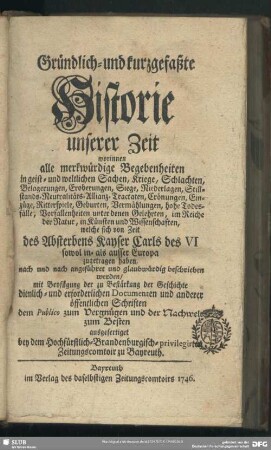 Gründlich-und kurzgefaßte
Historie
unserer Zeit
worinnen
alle merkwürdige Begebenheiten
in geist- und weltlichen Sachen, Kriege, Schlachten,
Belagerungen, Eroberungen, Siege, Niederlagen, Still-
stands-Neutralitäts-Allianz-Tractaten, Crönungen, Ein-
züge, Ritterspiele, Geburten, Vermählungen, hohe Todes-
fälle, Vorfallenheiten unter denen Gelehrten, im Reiche
der Natur, in Künsten und Wissenschaften,
welche sich von Zeit
des Absterbens Kayser Carls des VI
sowol in- als ausser Europa
zugetragen haben
nach und nach angeführet und glaubwürdig beschrieben
werden/
mit Beyfügung der zu Bestärkung der Geschichte
dienlich- und erforderlichen Documenten und anderer
öffentlichen Schriften
dem Publico zum Vergnügen und der Nachwelt
zum Besten
ausgefertiget
bey dem Hochfürstlich-Brandenburgisch-privilegirten
Zeitungscomtoir zu Bayreuth.
Bayreuth
im Verlag des daselbstigen Zeitungscomtoirs 1746.
SLUB
DFG